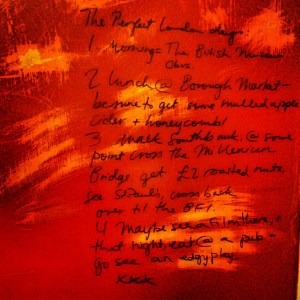 The Perfect London day:
1 Morning = The British Museum
2 Lunch @ Borough Market -
be sure to get some mulled apple
cider + honeycomb!
3 walk Southbank, @ some
point cross the Millenium
Bridge, get £2 roasted nuts,
see St Pauls, cross back
over til the BFI.
4 Maybe see a film there, +
that night, eat @ a pub -
go see an edgy play.
xxx